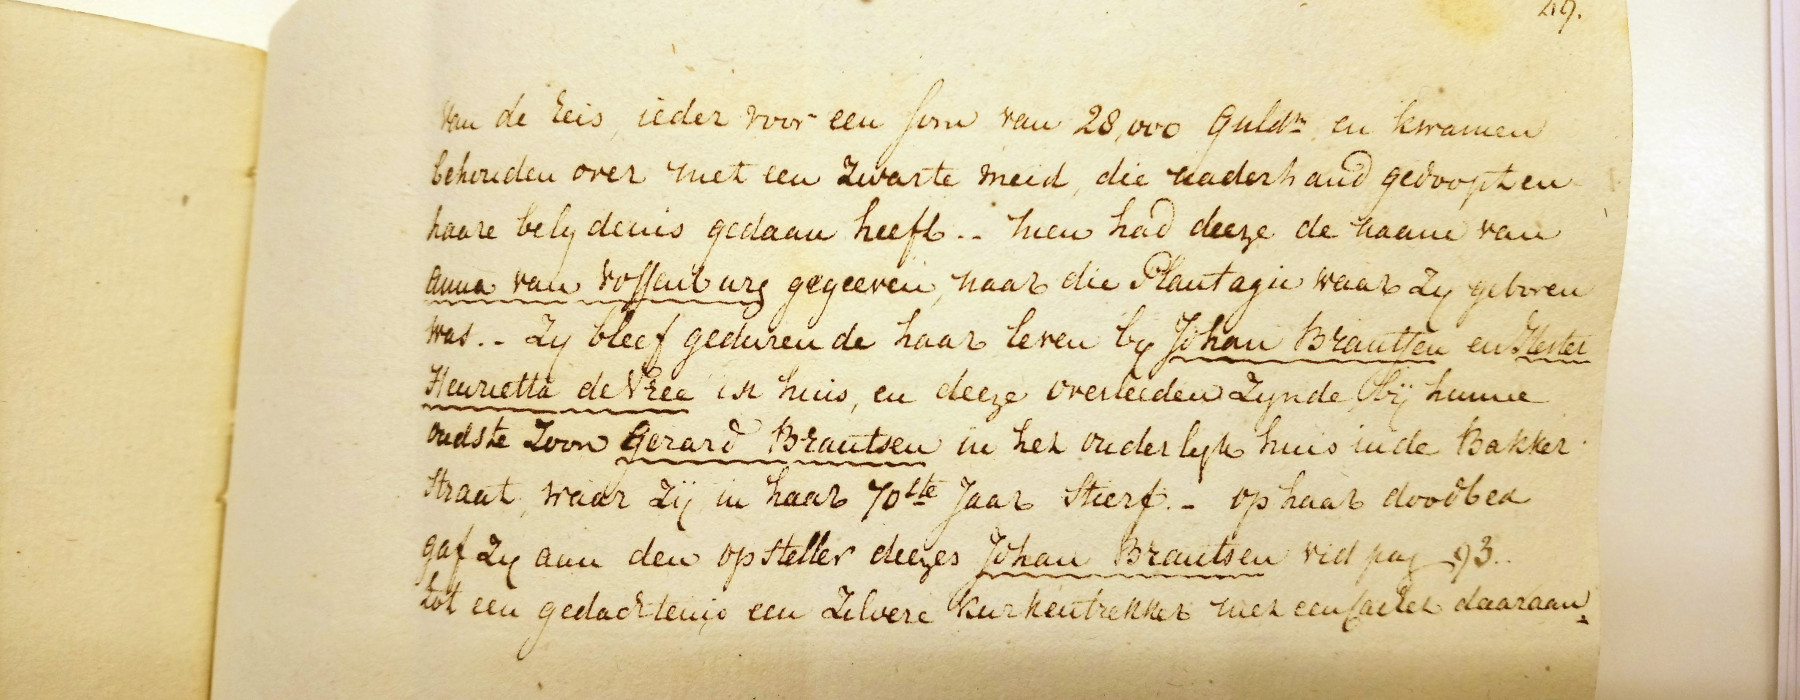 49.
van de Reis, ieder voor een som van 28,000 Guldn, en kwamen
behouden over met een Zwarte meid, die naderhand gedoopt en
haare belydenis gedaan heeft.. men had deeze de naam van
Anna van Vossenburg gegeeven, naar die Plantagie waar Zy geboren
was.. Zy bleef gedurende haar leven by Johan Brantsen en Hester
Henrietta de Vree in huis, en deeze overleeden Zynde, bij hunne
oudste Zoon Gerard Brantsen in het ouderlyk huis in de Bakker
Straat, waar Zij in haar 70ste Jaar Stierf.- op haar doodbed
gaf Zy aan den opsteller deezes Johan Brantsen vid pag 93..
tot een gedachtenis een Zilvere Kurkentrekker met een daaraan.